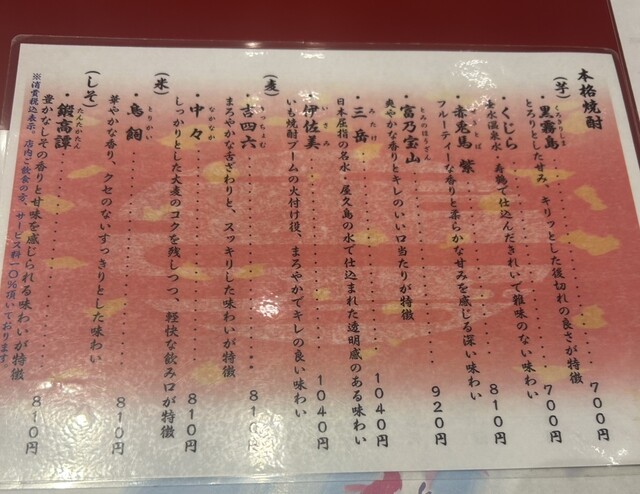 本格焼酎
(芋)
・黒霧島 くろきりしま 700円
とろりとした甘み、キリッとした後切れの良さが特徴
・くじら 700円
垂水温泉水・寿鶴で仕込んだきれいで雑味のない味わい
・赤兎馬 紫 810円
フルーティーな香りと柔らかな甘みを感じる深い味わい
・富乃宝山 とみのほうざん 920円
爽やかな香りとキレのいい口当たりが特徴
・三岳 みたけ 1040円
日本屈指の名水・屋久島の水で仕込まれた透明感のある味わい
・伊佐美 いさみ 1040円
いも焼酎ブームの火付け役、まろやかでキレの良い味わい
(麦)
・吉四六 きっちょむ 810円
まろやかな舌ざわりと、スッキリした味わいが特徴
・中々 なかなか 810円
しっかりとした大麦のコクを残しつつ、軽快な飲み口が特徴
(米)
・鳥飼 とりかい 810円
華やかな香り、クセのないすっきりとした味わい
(しそ)
・鍛高譚 たんたかたん 810円
豊かなしその香りと甘味を感じられる味わいが特徴
※消費税込表示、店内ご飲食の方、サービス料一〇%頂いております。